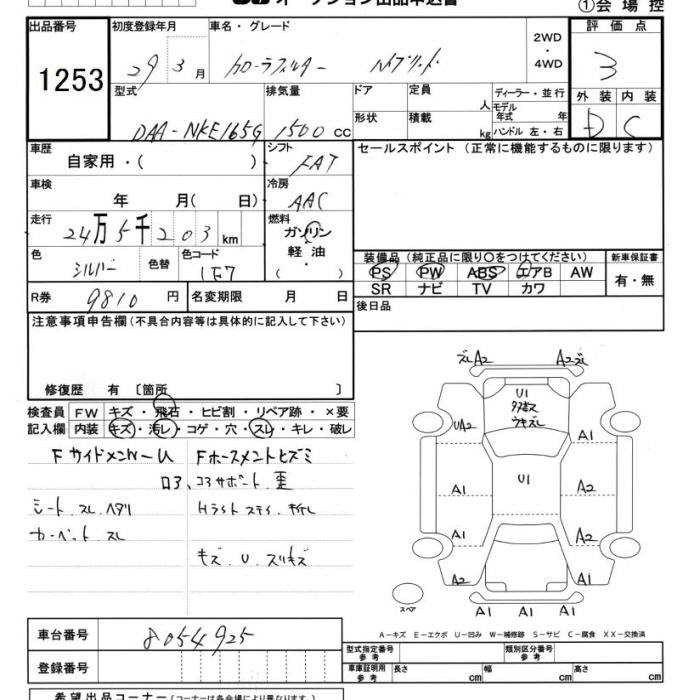 オークション出品申込書
①会場控
出品番号 初度登録年月 車名・グレード 2WD・4WD 評価点
1253 29 3月 カローラフィルダー ハイブリッド 3
型式 排気量 ドア 定員 人 ディーラー・並行 モデル年式 年 外装 内装
DAA-NKE165G 1500cc 形状 積載 kg ハンドル 左・右 D C
車歴 シフト セールスポイント (正常に機能するものに限ります)
自家用・( ) FAT
車検 冷房
年 月( 日) AAC
走行 燃料
24万5千203km ガソリン
軽油・
色 色替 色コード
シルバー 1F7
装備品 (純正品に限り○をつけてください) 新車保証書
PS PW ABS エアB AW 有・無
SR ナビ TV カワ
R券 9810円 名変期限 月 日 後日品
注意事項申告欄(不具合内容等は具体的に記入して下さい)
修復歴 有 〔箇所 〕
検査員記入欄 FW キズ・飛石・ヒビ割・リペア跡・×要
内装 キズ・汚レ・コゲ・穴・スレ・キレ・破レ
Fサイドメンバーム Fホースメントヒズミ
ロア、コアサポート 歪
シート スレ ヘタリ Hライトステイ 折レ
カーペット スレ
キズ U スリキズ
ズレA2 A2ズレ
U1
タタキズ
ウキズレ
UA2 A1
A1 U1 A2
A1 A2
A2 A1
A1 A1 A1
スペア
A-キズ E-エクボ U-凹み W-補修跡 S-サビ C-腐食 XX-交換済
車台番号 8054925
登録番号
型式指定番号 参考 類別区分番号 参考
車庫証明用 参考 長さ cm 幅 cm 高さ cm
希望出品コーナー(コーナーは各会場により異なります)